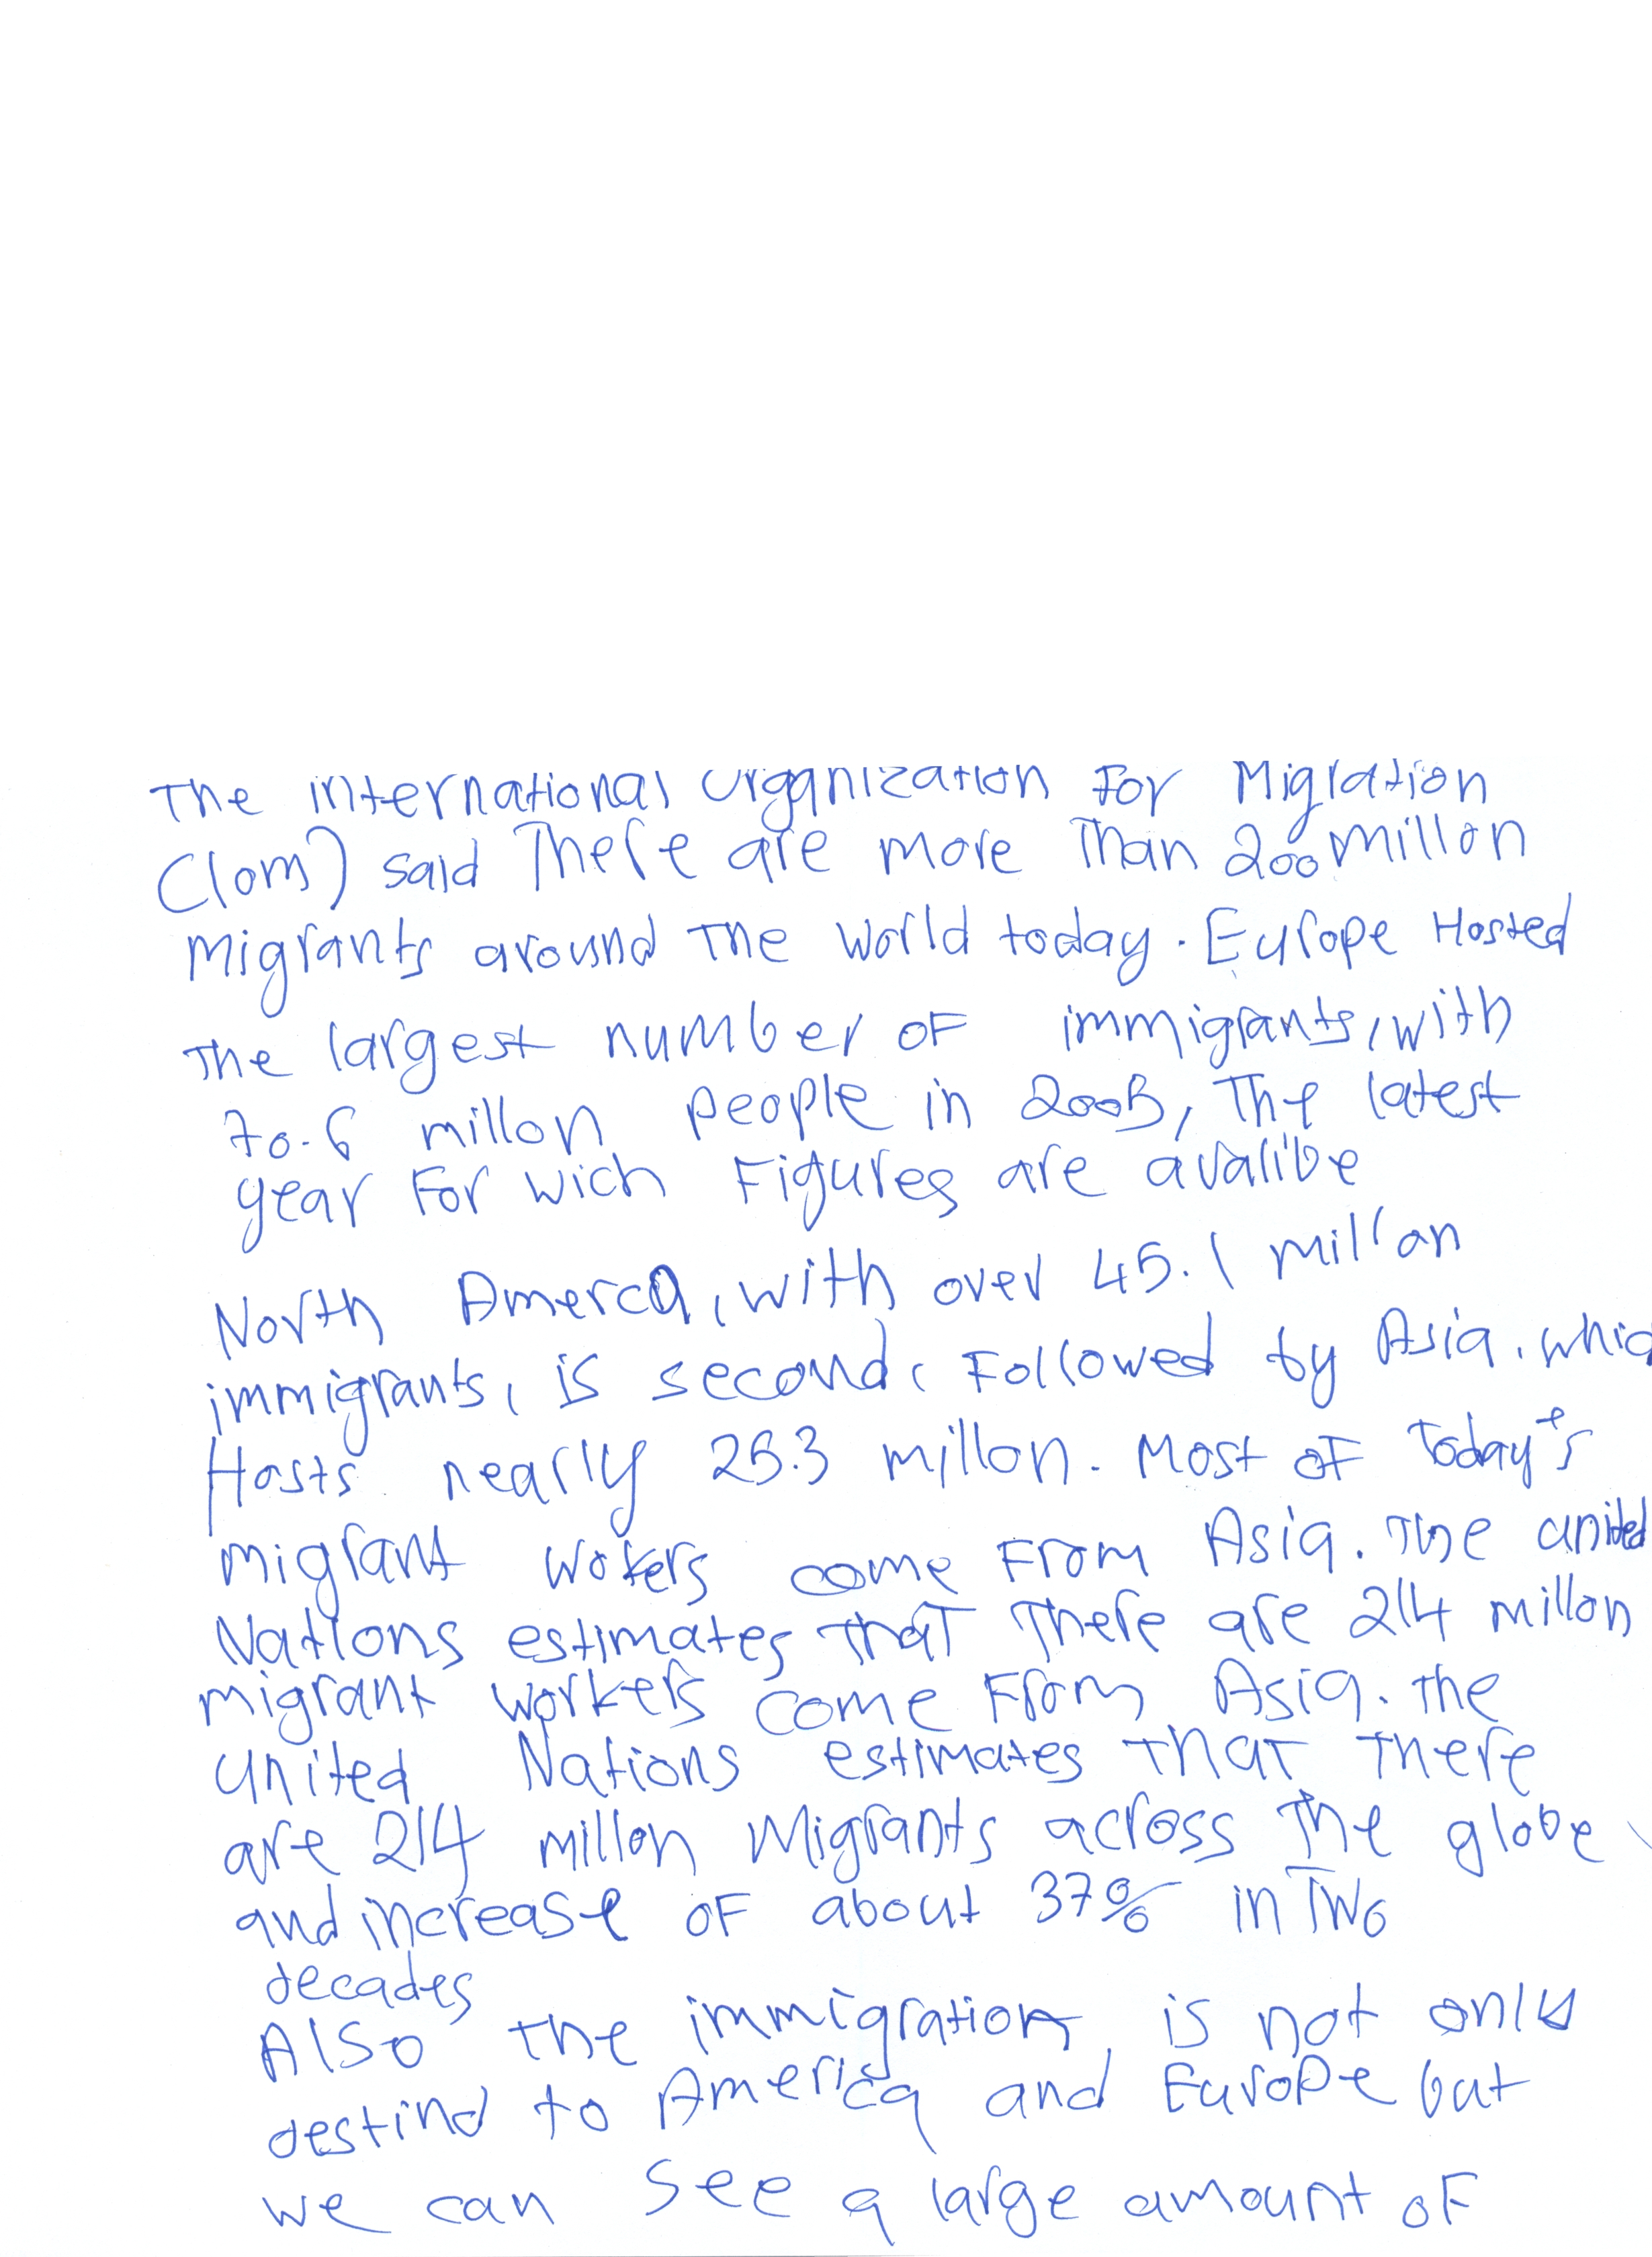 The international organization For Migration
(Iom) said There are more Than 200 millon
Migrants around The world today. Europe Hosted
The largest number oF immigrants, with
70.6 millon people in 2005, The latest
year For wich Figures are avalibe
North Amerca, with over 45.1 millon
immigrants, is second, Followed by Asia, whic
Hosts nearly 25.3 millon. Most oF Today's
migrant wokers come From Asia. The united
Nations estimates that There are 214 millon
migrant workers come From Asia. The
united Nations estimates That There
are 214 millon Migrants across The globe
and increase oF about 37% in Two
decades
Also The immigration is not only
destind to America and Europe but
we can see a large amount oF